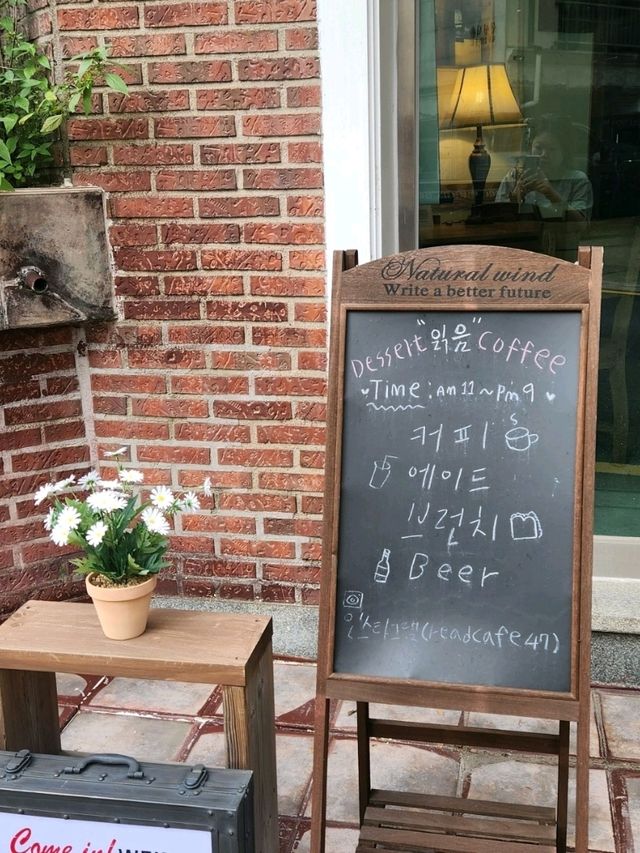 Natural wind
Write a better future
Dessert "읽음" Coffee
Time : AM 11 ~ PM 9
커피
에이드
브런치
Beer
인스타그램(readcafe47)
Come in!